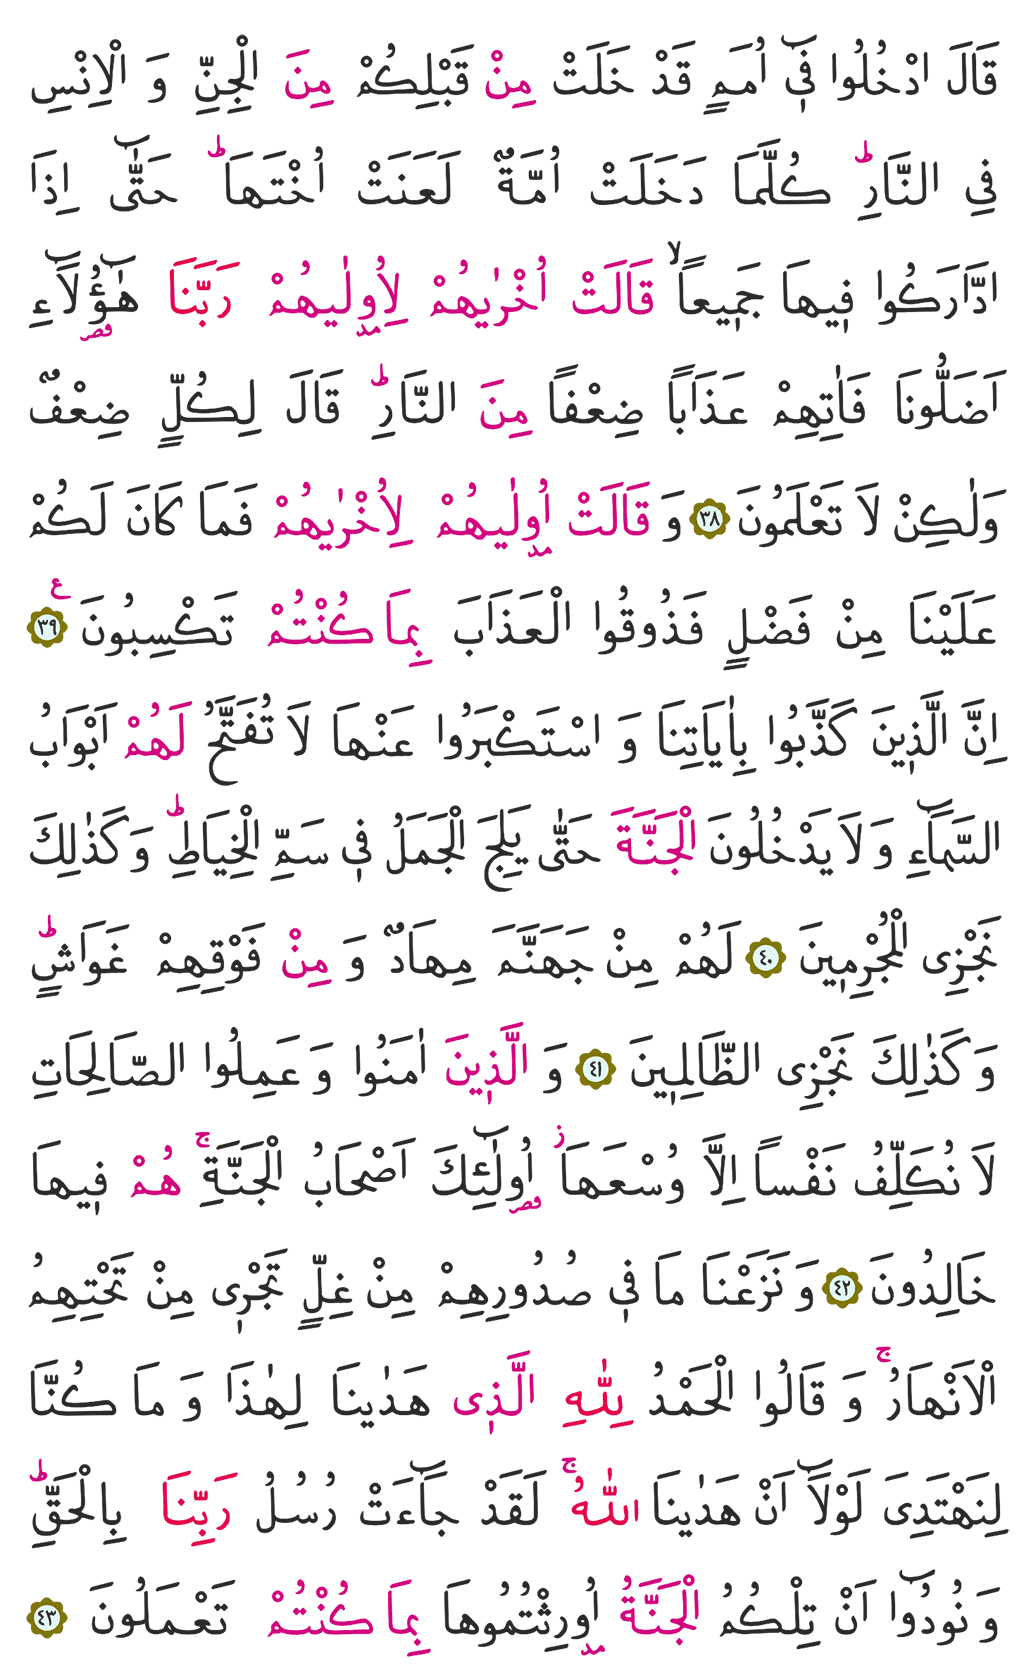 قَالَ ادْخُلُوا فٖٓي اُمَمٍ قَدْ خَلَتْ مِنْ قَبْلِكُمْ مِنَ الْجِنِّ وَ الْاِنْسِ
فِي النَّارِؕ كُلَّمَا دَخَلَتْ اُمَّةٌ لَعَنَتْ اُخْتَهَاؕ حَتّٰٓى اِذَا
ادَّارَكُوا فٖيهَا جَمٖيعاًۙ قَالَتْ اُخْرٰيهُمْ لِاُو۫لٰيهُمْ رَبَّنَا هٰٓؤُ۬لَٓاءِ
اَضَلُّونَا فَاٰتِهِمْ عَذَاباً ضِعْفاً مِنَ النَّارِؕ قَالَ لِكُلٍّ ضِعْفٌ
وَلٰكِنْ لَا تَعْلَمُونَ ﴿٣٨﴾ وَ قَالَتْ اُو۫لٰيهُمْ لِاُخْرٰيهُمْ فَمَا كَانَ لَكُمْ
عَلَيْنَا مِنْ فَضْلٍ فَذُوقُوا الْعَذَابَ بِمَا كُنْتُمْ تَكْسِبُونَ ع ﴿٣٩﴾
اِنَّ الَّذٖينَ كَذَّبُوا بِاٰيَاتِنَا وَ اسْتَكْبَرُوا عَنْهَا لَا تُفَتَّحُ لَهُمْ اَبْوَابُ
السَّمَٓاءِ وَ لَا يَدْخُلُونَ الْجَنَّةَ حَتّٰى يَلِجَ الْجَمَلُ فٖي سَمِّ الْخِيَاطِؕ وَ كَذٰلِكَ
نَجْزِى الْمُجْرِمٖينَ ﴿٤٠﴾ لَهُمْ مِنْ جَهَنَّمَ مِهَادٌ وَ مِنْ فَوْقِهِمْ غَوَاشٍؕ
وَ كَذٰلِكَ نَجْزِى الظَّالِمٖينَ ﴿٤١﴾ وَ الَّذٖينَ اٰمَنُوا وَ عَمِلُوا الصَّالِحَاتِ
لَا نُكَلِّفُ نَفْساً اِلَّا وُسْعَهَاؗ اُو۬لٰٓئِكَ اَصْحَابُ الْجَنَّةِۚ هُمْ فٖيهَا
خَالِدُونَ ﴿٤٢﴾ وَ نَزَعْنَا مَا فٖي صُدُورِهِمْ مِنْ غِلٍّ تَجْرٖي مِنْ تَحْتِهِمُ
الْاَنْهَارُۚ وَ قَالُوا الْحَمْدُ لِلّٰهِ الَّذٖى هَدٰينَا لِهٰذَا وَ مَا كُنَّا
لِنَهْتَدِىَ لَوْلَٓا اَنْ هَدٰينَا اللّٰهُۚ لَقَدْ جَٓاءَتْ رُسُلُ رَبِّنَا بِالْحَقِّؕ
وَ نُودُٓوا اَنْ تِلْكُمُ الْجَنَّةُ اُو۫رِثْتُمُوهَا بِمَا كُنْتُمْ تَعْمَلُونَ ﴿٤٣﴾